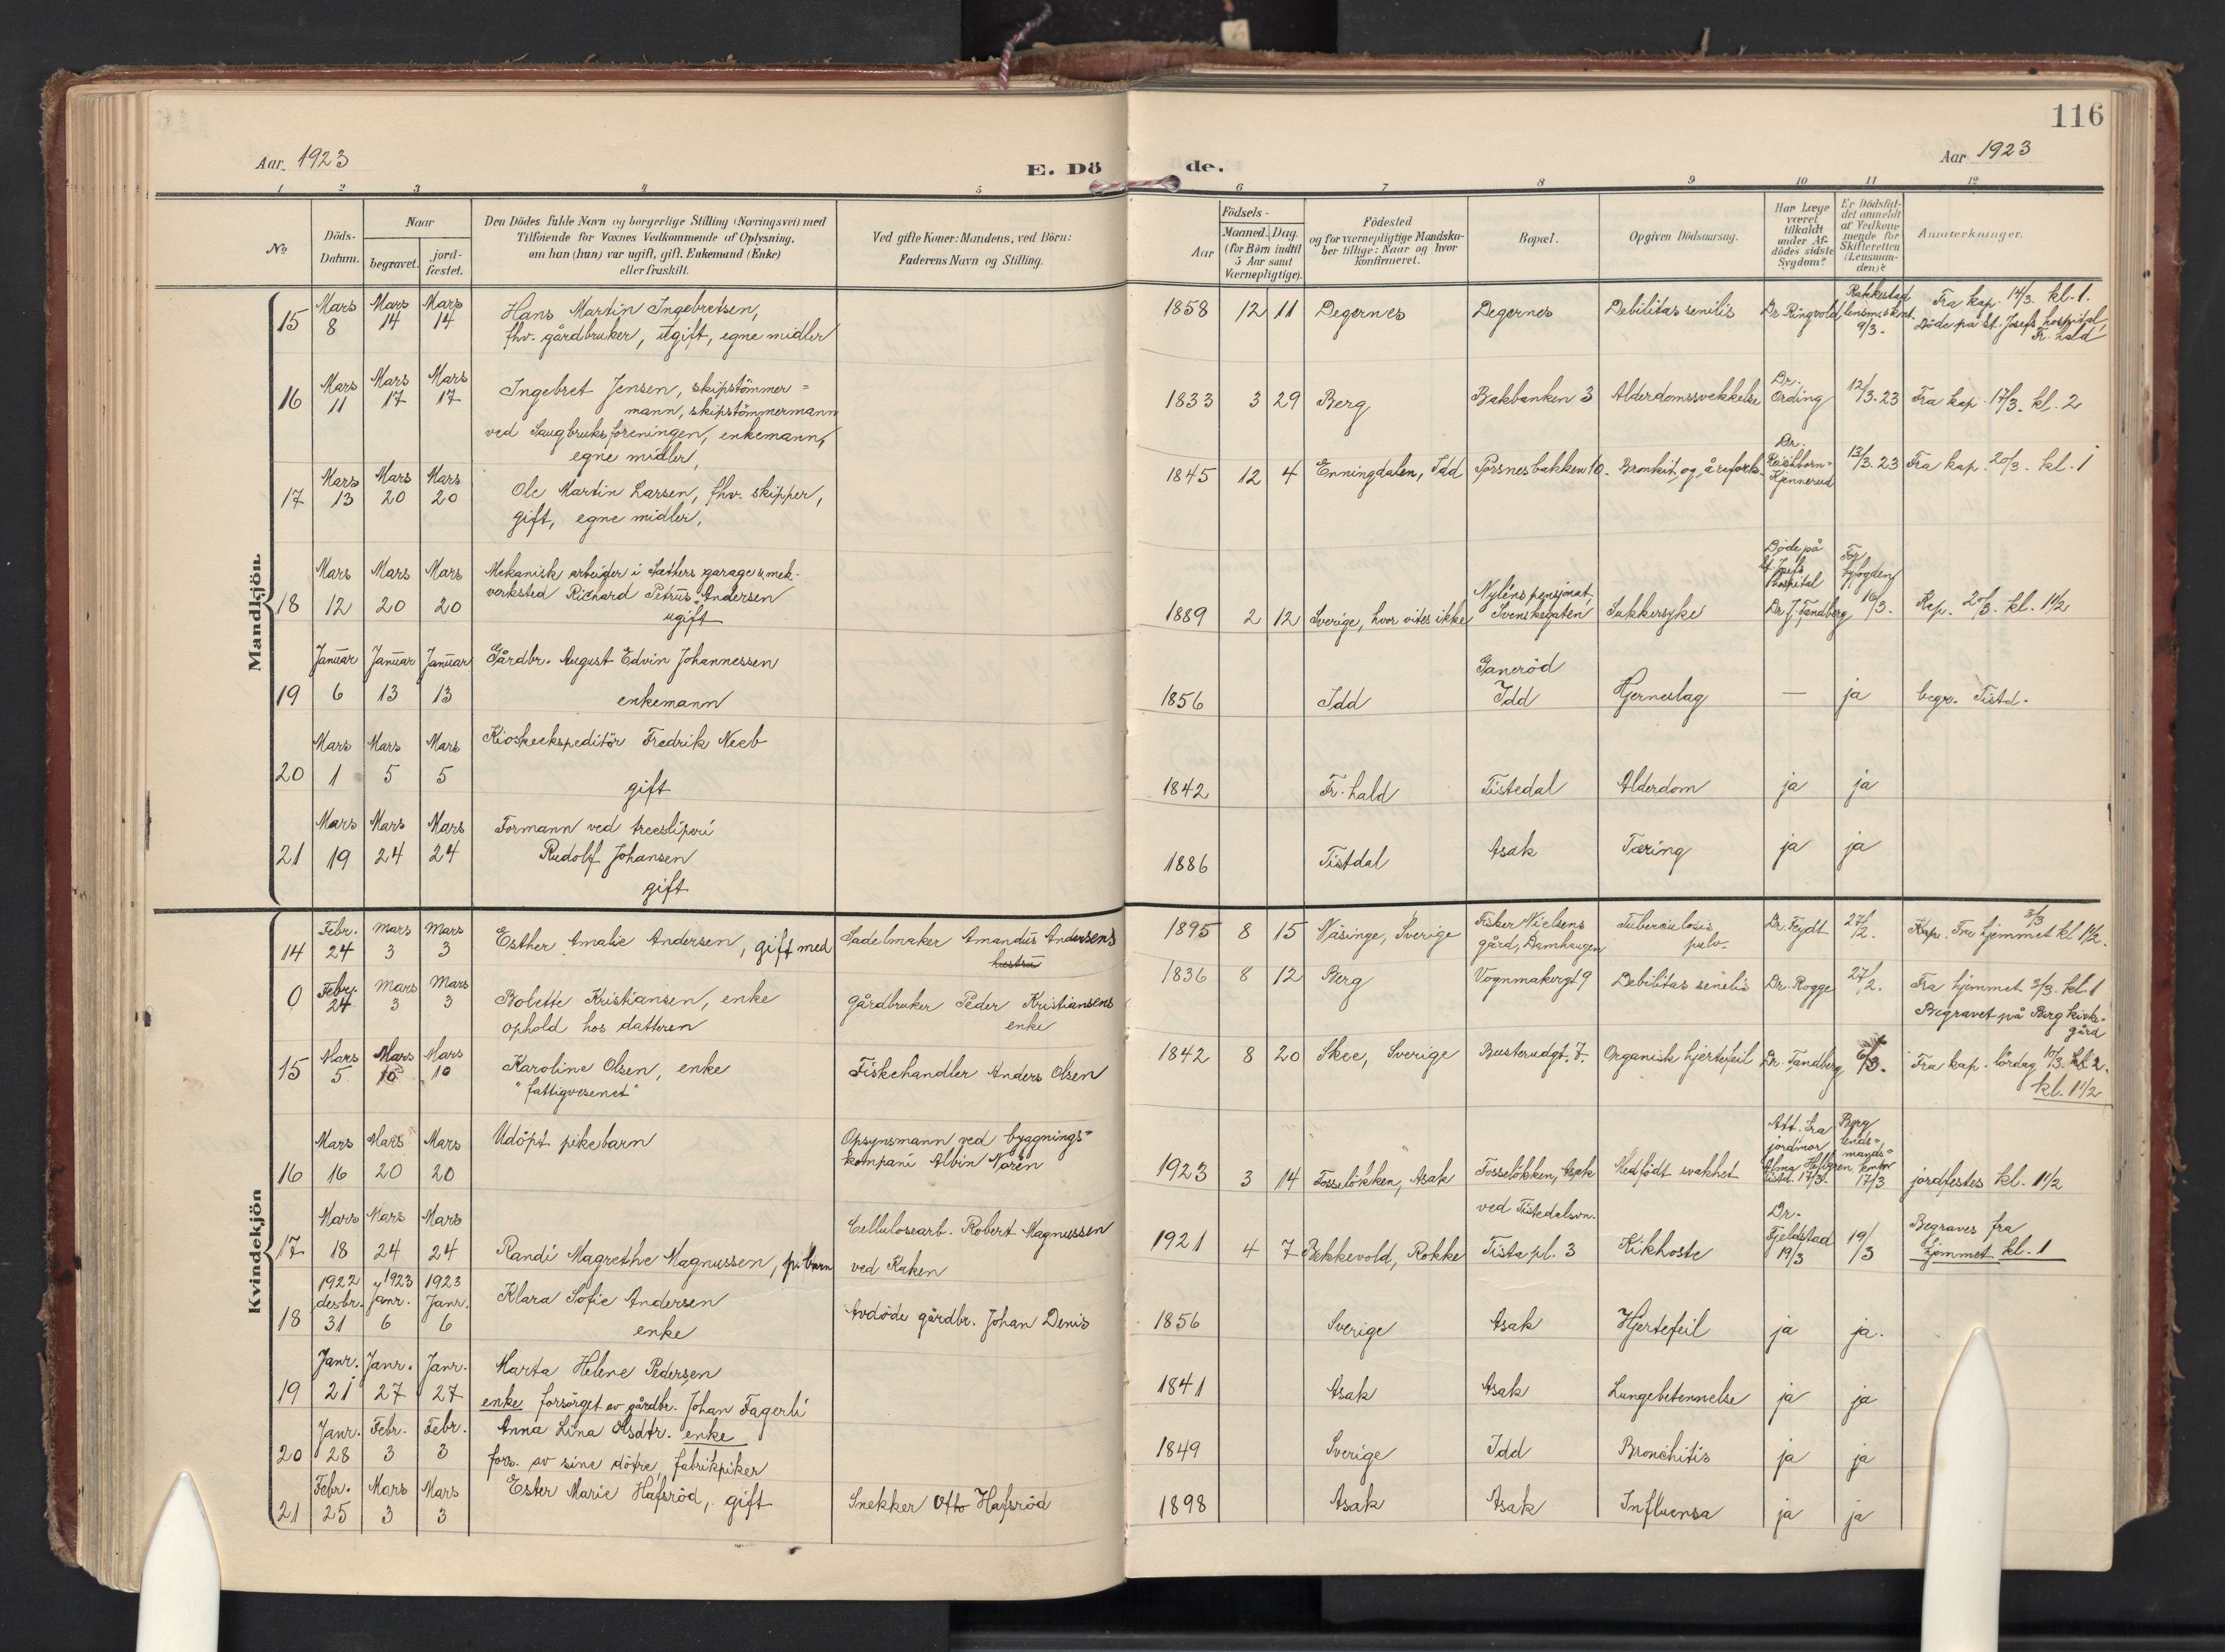 116
Aar 1923
E. Dö
de.
Aar 1923
1 2 3 4 5 6 7 8 9 10 11 12
No
Döds-
Datum.
Naar
begravet.
jord-
fæstet.
Den Dödes fulde Navn og borgerlige Stilling (Næringsvei) med
Tilföiende for Voxnes Vedkommende af Oplysning,
om han (hun) var ugift, gift, Enkemand (Enke)
eller fraskilt.
Ved gifte Koner: Mandens, ved Börn:
Faderens Navn og Stilling.
Födsels-
Aar
Maaned. Dag.
(for Börn indtil
5 Aar samt
Værnepligtige).
Födested
og for værnepligtige Mandska-
ber tillige: Naar og hvor
konfirmeret.
Bopæl.
Opgiven Dödsaarsag.
Har Læge
været
tilkaldt
under Af-
dödes sidste
Sygdom?
Er Dödsfal-
det anmeldt
af Vedkom-
mende for
Skifteretten
(Lensman-
den)?
Anmærkninger.
Mandkjön.
15 Mars 8 Mars 14 Mars 14
Hans Martin Ingebretsen,
fhv. gårdbruker, ugift, egne midler
1858 12 11 Degernes Degernes Debilitas senilis Dr. Ringvold,
Rakkestad
lensm.sknt.
9/3.
Fra kap. 14/3. kl. 1.
Döde på St. Josefs hospital,
Fr.hald
16 Mars 11 Mars 17 Mars 17
Ingebret Jensen, skipstömmer=
mann, skipstömmermann
ved Saugbruksforeningen, enkemann,
egne midler,
1833 3 29 Berg Bakbanken 3 Alderdomssvekkelse
Dr.
Ording
12/3.23 Fra kap. 17/3. kl. 2
17 Mars 13 Mars 20 Mars 20
Ole Martin Larsen, fhv. skipper,
gift, egne midler,
1845 12 4 Enningdalen, Idd Torsnesbakken 10. Bronkit og årefork.
Dr.
Reichborn=
Kjennerud
13/3.23 Fra kap. 20/3. kl. 1
18 Mars 12 Mars 20 Mars 20
Mekanisk arbeider i Sæthers garage & mek.
verksted Richard Petrus Andersen
ugift
1889 2 12 Sverige, hvor vites ikke
Nyléns pensjonat,
Svenskegaten
Sukkersyke
Döde på
St. Josefs
hospital
Dr. J. Tandberg
For
byfogden
16/3.
Kap. 20/3. kl. 1 1/2
19 Januar 6 Januar 13 Januar 13
Gårdbr. August Edvin Johannessen
enkemann
1856 Idd
Ganeröd
Idd
Hjerneslag — ja begr. Tistd.
20 Mars 1 Mars 5 Mars 5
Kioskekspeditör Fredrik Neeb
gift
1842 Fr.hald Tistedal Alderdom ja ja
21 Mars 19 Mars 24 Mars 24
Formann ved treesliperi
Rudolf Johansen
gift
1886 Tistdal Asak Tæring ja ja
Kvindekjön
14 Febr. 24 Mars 3 Mars 3
Esther Amalie Andersen, gift med
Sadelmaker Amandus Andersens
hustru
1895 8 15 Näsinge, Sverige
Fisker Nielsens
gård, Damhaugen
Tuberculosis
pulv.
Dr. Feydt 27/2. Kap. Fra hjemmet 3/3 kl. 1 1/2.
0 Febr. 24 Mars 3 Mars 3
Bolette Kristiansen, enke
ophold hos datteren
gårdbruker Peder Kristiansens
enke
1836 8 12 Berg Vognmakergt 9 Debilitas senilis Dr. Rogge 27/2.
Fra hjemmet 3/3. kl. 1
Begravet på Berg kirke=
gård
15 Mars 5 Mars 10 Mars 10
Karoline Olsen, enke
"fattigvesenet"
Fiskehandler Anders Olsen
1842 8 20 Skee, Sverige Busterudgt. 7. Organisk hjertefeil Dr. Tandberg 6/3.
Fra kap. lördag 10/3. kl. 2.
kl. 1 1/2
16 Mars 16 Mars 20 Mars 20
Udöpt pikebarn
Opsynsmann ved byggnings=
kompani Albin Norén
1923 3 14 Fosselökken, Asak Fosselökken, Asak
ved Tistedalsvn.
Medfödt svakhet
Att. fra
jordmor
Alma Hellgren
tistd. 17/3.
Berg
lends=
mands=
kntor
17/3
jordfestes kl. 1 1/2
17 Mars 18 Mars 24 Mars 24
Randi Magrethe Magnussen, pi.barn
Cellulosearb. Robert Magnussen
ved Kaken
1921 4 7 Bekkevold, Rokke Tista pl. 3 Kikhoste
Dr.
Fjeldstad
19/3
19/3
Begraves fra
hjemmet kl. 1
18 1922 desbr. 31 1923 Janr. 6 1923 Janr. 6
Klara Sofie Andersen
enke
Avdöde gårdbr. Johan Denis
1856 Sverige Asak Hjertefeil ja ja.
19 Janr. 21 Janr. 27 Janr. 27
Marta Helene Pedersen
enke forsörget av gårdbr. Johan Fagerli
1841 Asak Asak Lungebetennelse ja ja
20 Janr. 28 Febr. 3 Febr. 3
Anna Lina Olsdtr. enke
fors. av sine dötre, fabrikpiker
1849 Sverige Idd Bronchitis ja ja
21 Febr. 25 Mars 3 Mars 3
Ester Marie Hafsröd, gift
Snekker Otto Hafsröd
1898 Asak Asak Influensa ja ja